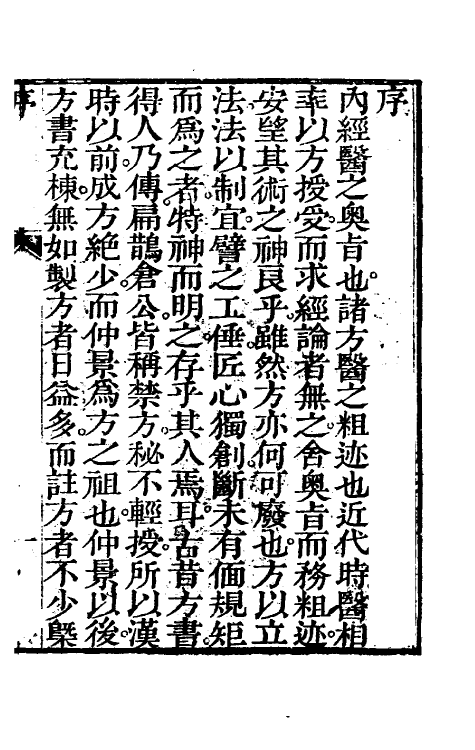 序
內經醫之奧旨也諸方醫之粗迹也近代時醫相
率以方授受而求經論者無之舍奧旨而務粗迹
安望其術之神良乎雖然方亦何可廢也方以立
法法以制宜譬之工倕匠心獨創斷未有偭規矩
而爲之者特神而明之存乎其人焉耳古昔方書
得人乃傳扁鵲倉公皆稱禁方秘不輕授所以漢
時以前成方絶少而仲景爲方之祖也仲景以後
方書充棟無如製方者日益多而註方者不少槩
序